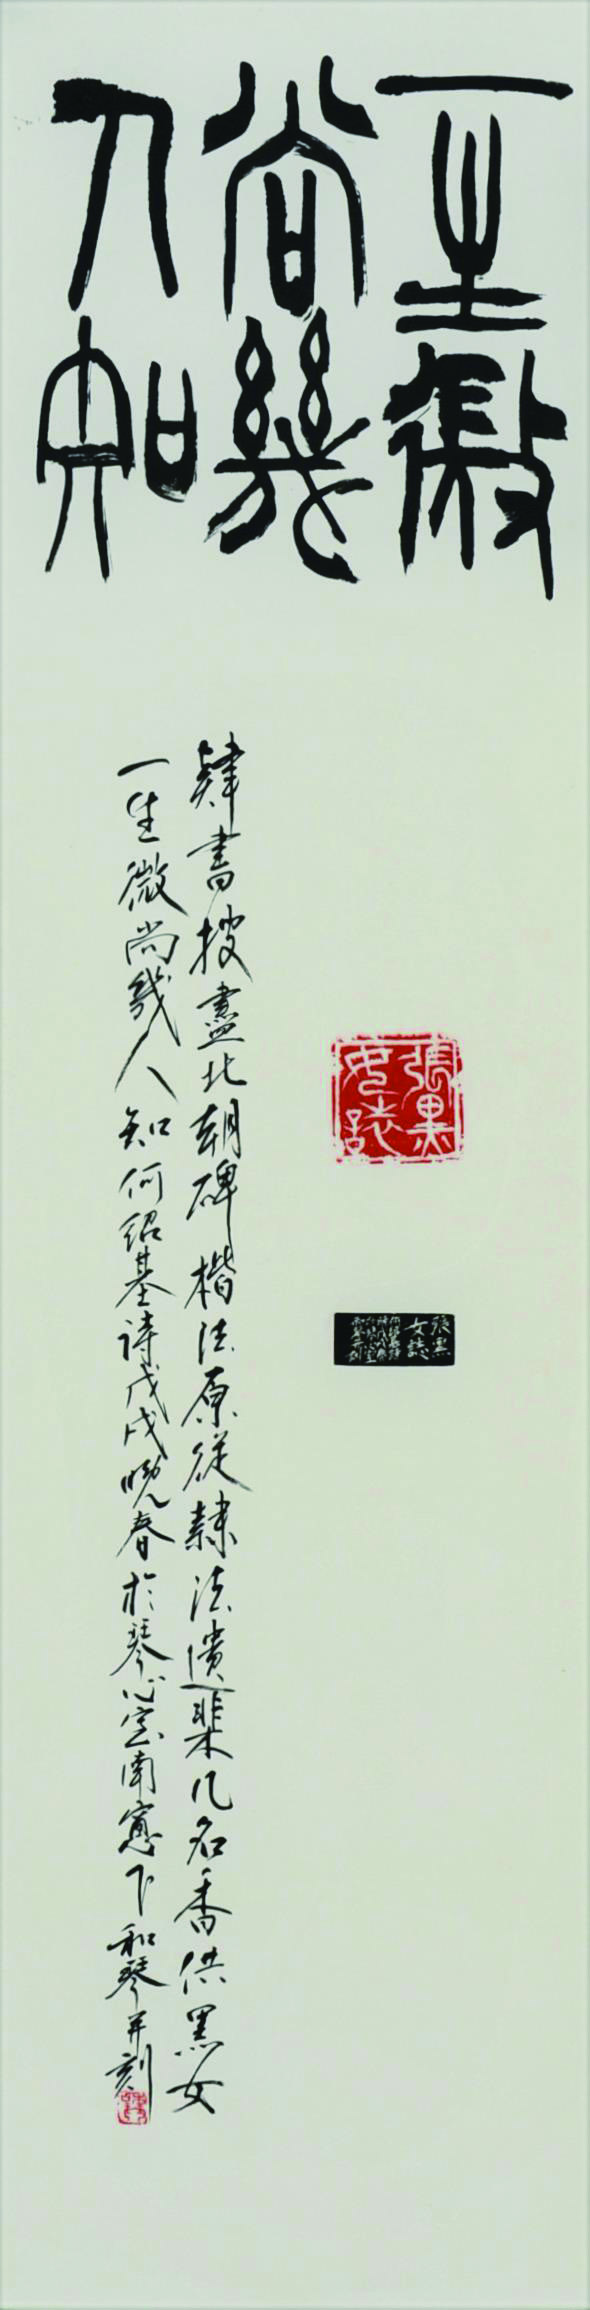 一生微
尚幾
人知
張黑
女誌
張黑
女誌
肄書搜盡北朝碑楷法原從隸法遺棐几名香供黑女
一生微尚幾人知何紹基詩戊戌晚春於琴心室南窗下和琴并刻